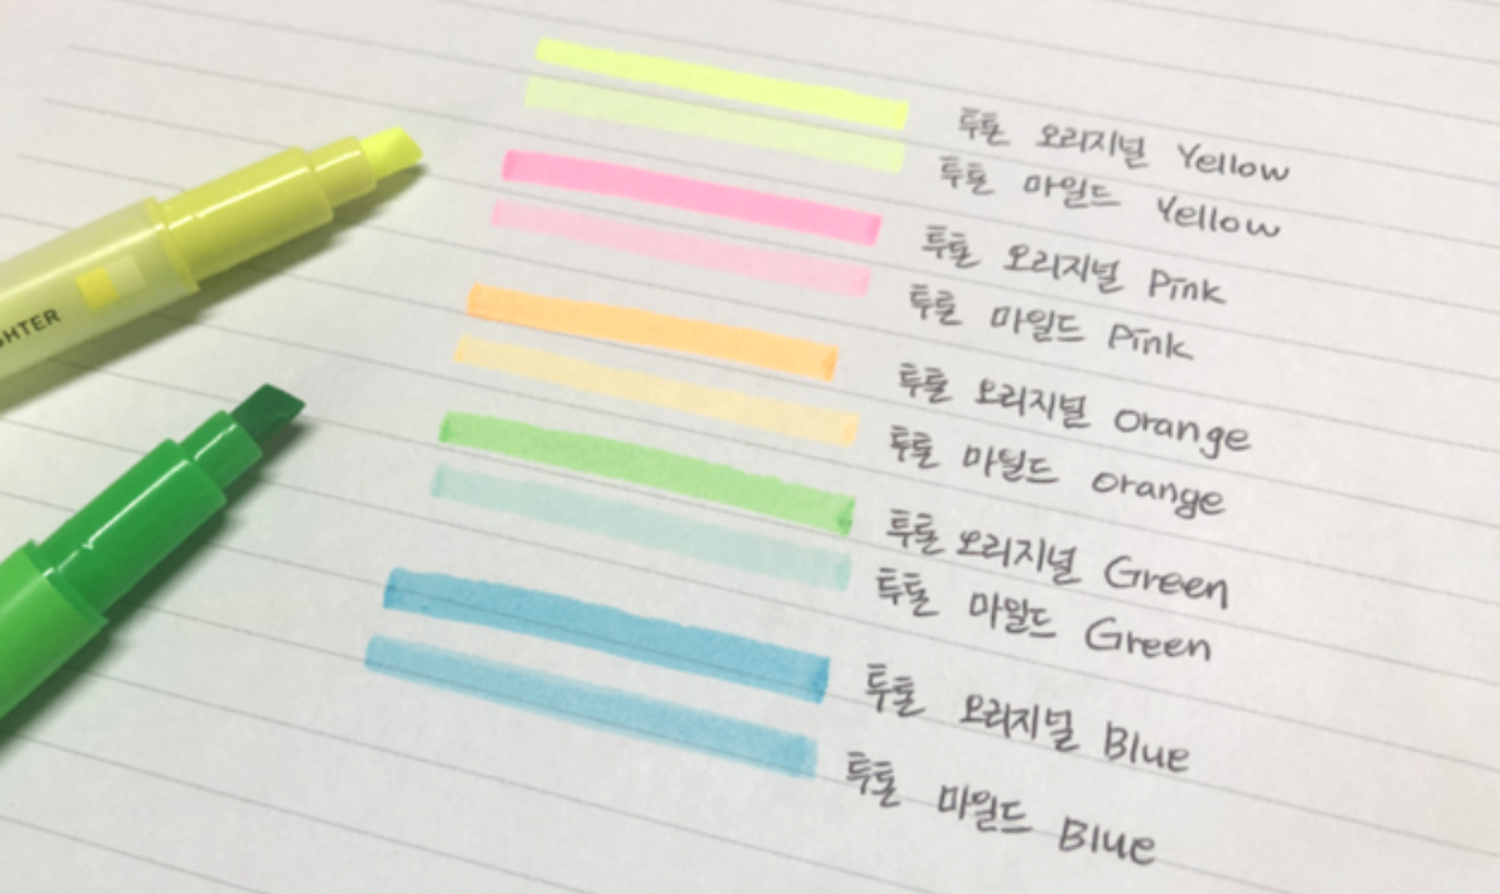 투톤 오리지널 Yellow
투톤 마일드 Yellow
투톤 오리지널 Pink
투톤 마일드 Pink
투톤 오리지널 Orange
투톤 마일드 orange
투톤 오리지널 Green
투톤 마일드 Green
투톤 오리지널 Blue
투톤 마일드 Blue
GHTER